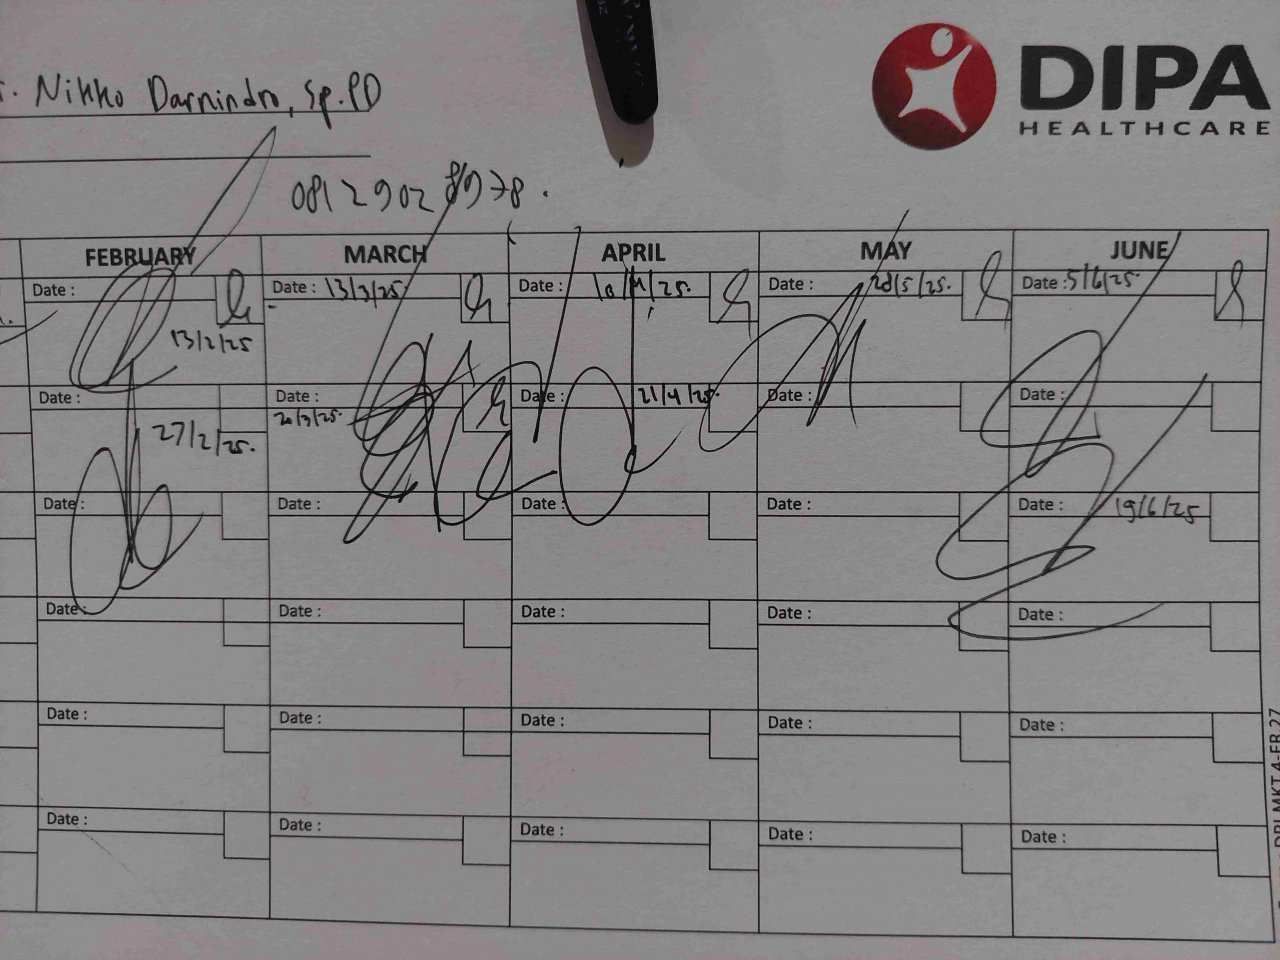 DIPA
HEALTHCARE
r. Nikko Darnindro, Sp.PD
0812 902 8978.
FEBRUARY MARCH APRIL MAY JUNE
Date : Date : 13/3/25. Date : 10/4/25. Date : 28/5/25. Date : 5/6/25.
13/2/25
Date : Date : Date : 21/4/25. Date : Date :
20/3/25.
27/2/25.
Date : Date : Date : Date : Date : 19/6/25
Date : Date : Date : Date : Date :
Date : Date : Date : Date : Date :
Date : Date : Date : Date : Date :